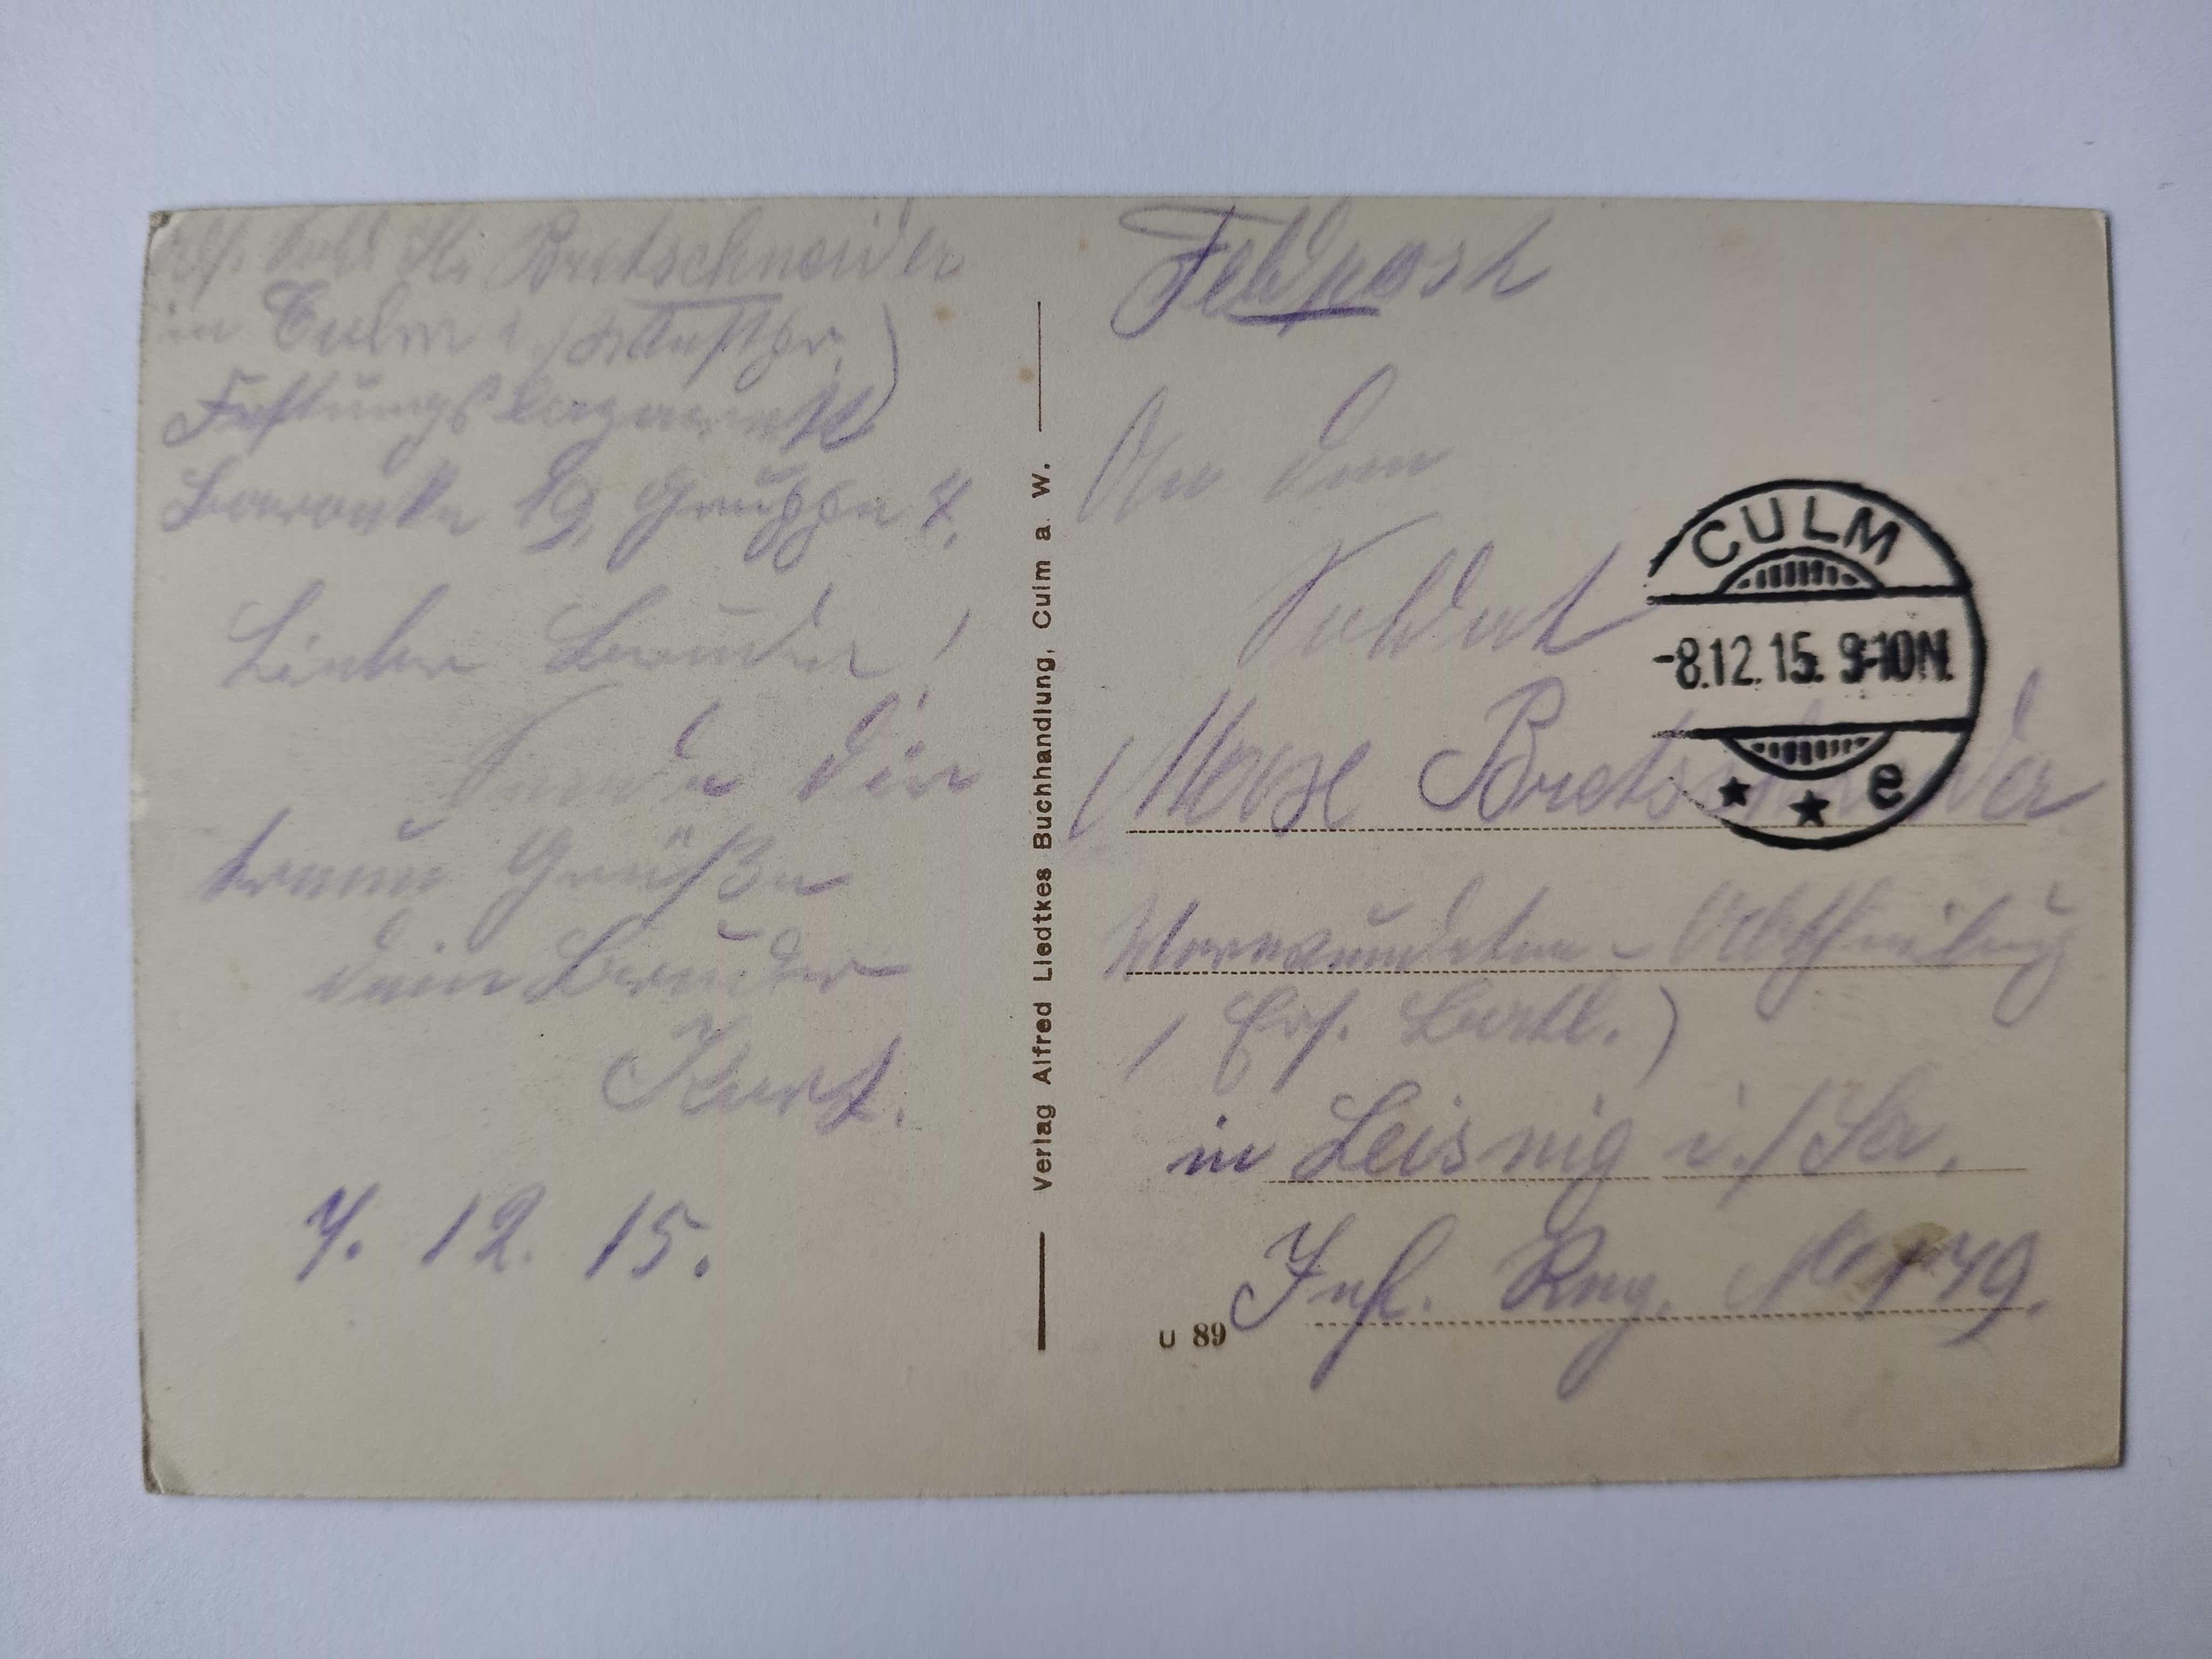 Abs. Sold. K. Bretschneider
in Culm (Westpr.)
Festungslazarett
Baracke 19, Gruppe 4.
Lieber Bruder!
Sende dir
treue Grüße
dein Bruder
Kurt.
7. 12. 15.
Verlag Alfred Liedtkes Buchhandlung, Culm a. W.
Feldpost
An den
Soldat
CULM
-8.12.15. 9-10N.
* * e
Max Bretschneider
Verwundeten-Abtheilung
(Ers. Batl.)
in Leisnig i./Sa.
Inf. Reg. No 179.
U 89